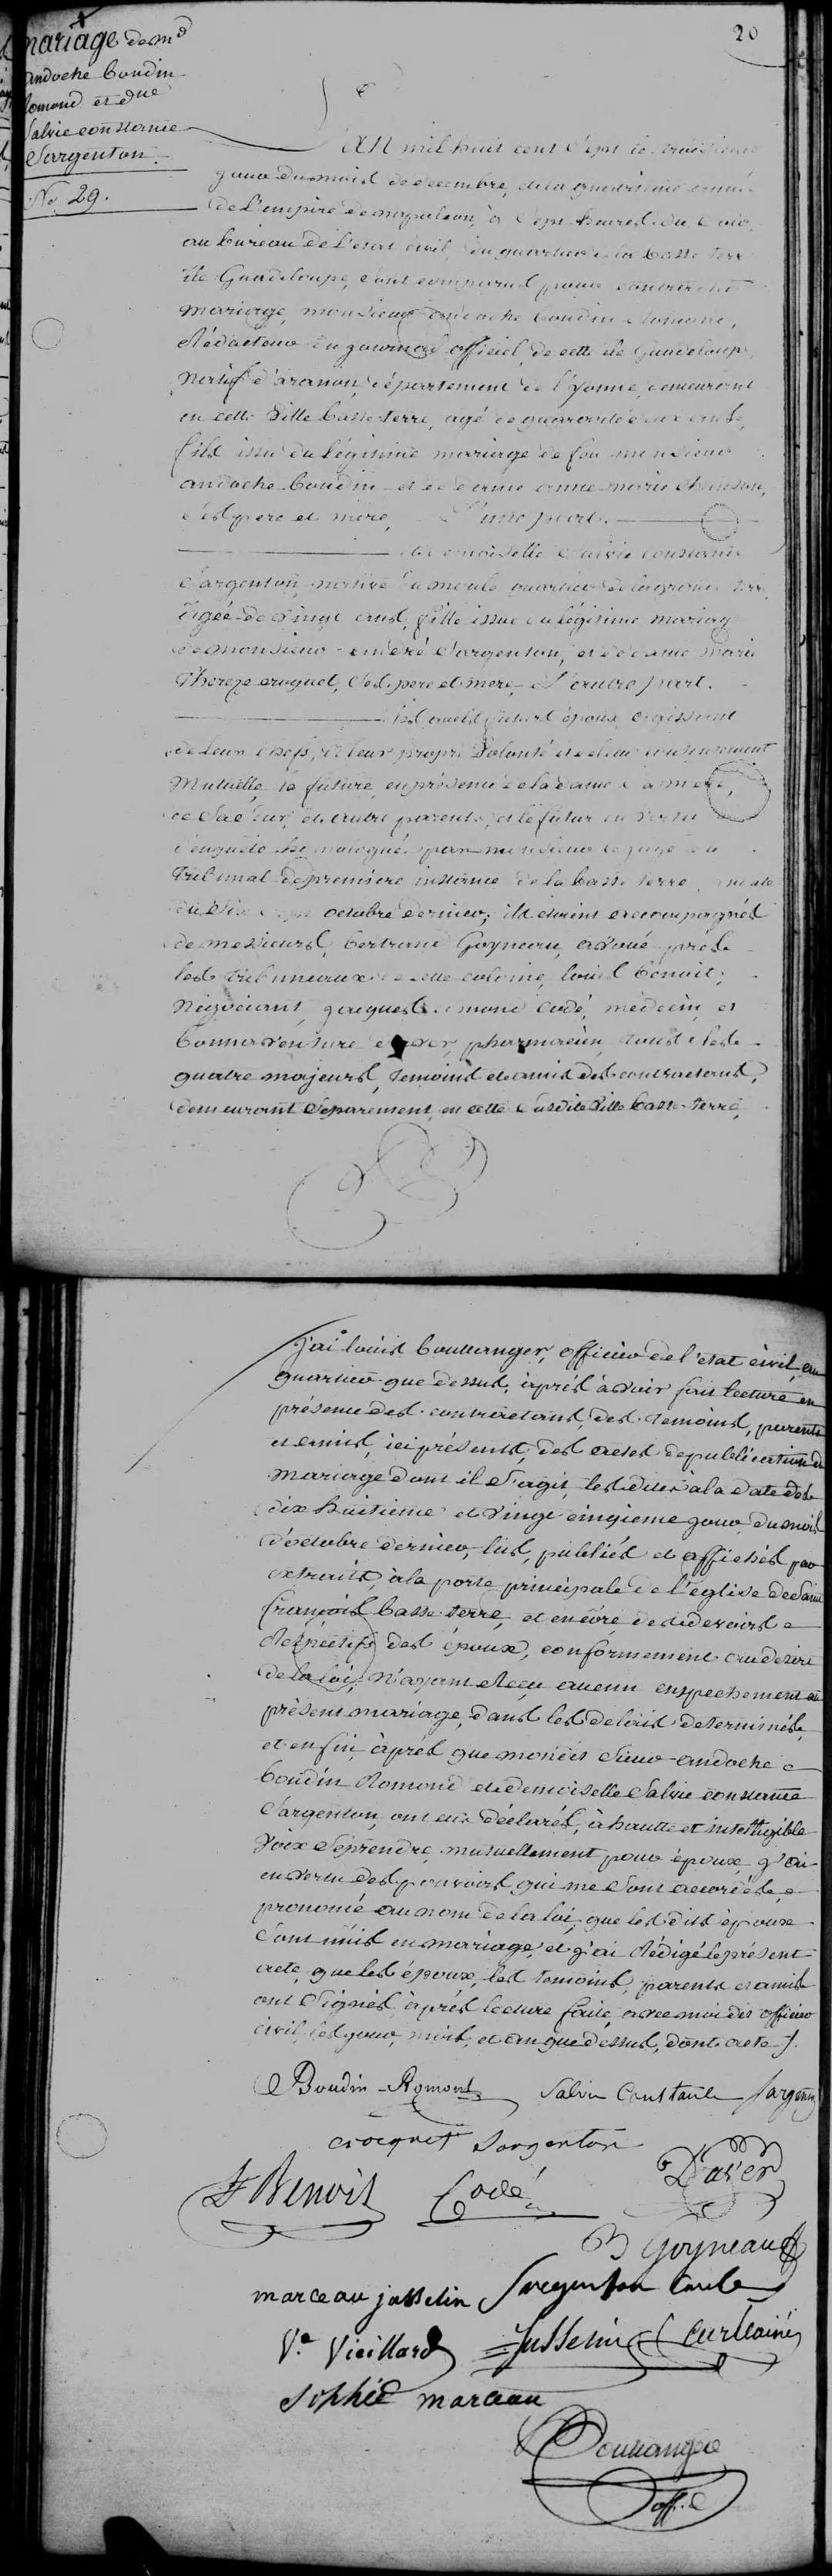 20
mariage de mr
andoche boudin
Romond et dlle
Salvie constance
Sargenton.
No. 29.
L'AN mil huit cent Sept le troisieme
jour du mois de decembre, de la quatrieme année
de L'empire de napoléon, à Sept heures du Soir,
au bureau de l'etat civil, du quartier de la basse terre
île Guadeloupe, sont comparus pour contracter
mariage, monsieur andoche boudin Romond,
Rédacteur du journal officiel de cette île Guadeloupe,
natif d'avanon, département de l'yonne, demeurant
en cette Ville basse-terre, agé de quarante deux ans,
fils issu du légitime mariage de feu monsieur
andoche boudin et de dame anne marie
ses pere et mere, D'une part.
et demoiselle Salvie constance
Sargenton, native du moule quartier de la grande terre,
âgée de Vingt ans, fille issue du légitime mariage
de monsieur andré Sargenton, et de dame marie
Thereze croquet, Ses pere et mere, D'autre part.
Lesquels futurs époux agissant
de leurs chefs, de leur propre Volonté et de leur consentement
Mutuelle, la future en présence de la dame Sa mere,
de Sa Sœur, et autre parents, et le futur en vertu
d'enquête homologuée par monsieur le juge du
Tribunal de premiere instance de la basse terre, en date
du dix Sept octobre dernier; ils etoient accompagnés
de messieurs, bertrand Goyneau, avoué près
les Tribuneaux de cette colonie, louis benoit,
Négociant, jacques Codé, médecin, et
bonnaventure daver, pharmacien, tous
quatre majeurs, temoins et amis des contractans,
demeurant Séparement, en cette Susdite Ville basse-terre,
j'ai louis boullanger, officier de l'etat civil, au
quartier que dessus, après avoir fait lecture en
présence des contractans, des temoins, parents
et amis, ici présents, des actes de publication du
mariage dont il S'agit, les dites à la date des
dix huitieme et vingt cinqieme jour du mois
d'octobre dernier, lus, publiés et affichés par
extraits, à la porte principale de l'église de Saint
françois basse-terre, et encore des devoirs
Respectifs des époux, conformement au desire
de la loi, n'ayant Reçu aucun empechement au
présent mariage, dans les delais determinés,
et enfin, après que monsieur andoche
boudin Romond et demoiselle Salvie constance
Sargenton, ont eu déclarés, à haute et intelligible
Voix Séprendre, mutuellement pour époux, j'ai
en vertu des pouvoirs qui me Sont accordés,
prononcé au nom de la loi, que les dits époux
Sont unis en mariage, et j'ai Rédigé le présent
acte, que les époux, les temoins, parents et amis
ont Signés, après lecture faite, avec moi dit officier
civil, les jour, mois, et an que dessus, dont acte.
Boudin-Romond Salvie Constance Sargenton
crocquet Sargenton
L Benoit Codé Daver
B Goyneau
marceau josselin Sargenton
Ve Vieillard Jusselin
Sophie marceau
Boullanger
off. c